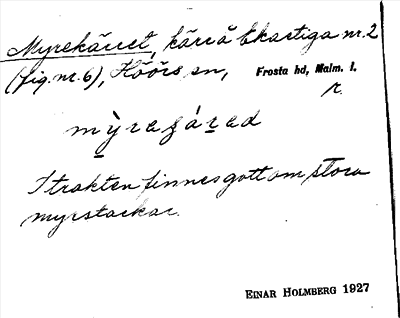 Myrekärret, kärr å Ekastiga nr. 2
(fig. nr. 6), Höörs sn, Frosta hd, Malm. l.
I trakten finnes gott om stora
myrstackar.
EINAR HOLMBERG 1927